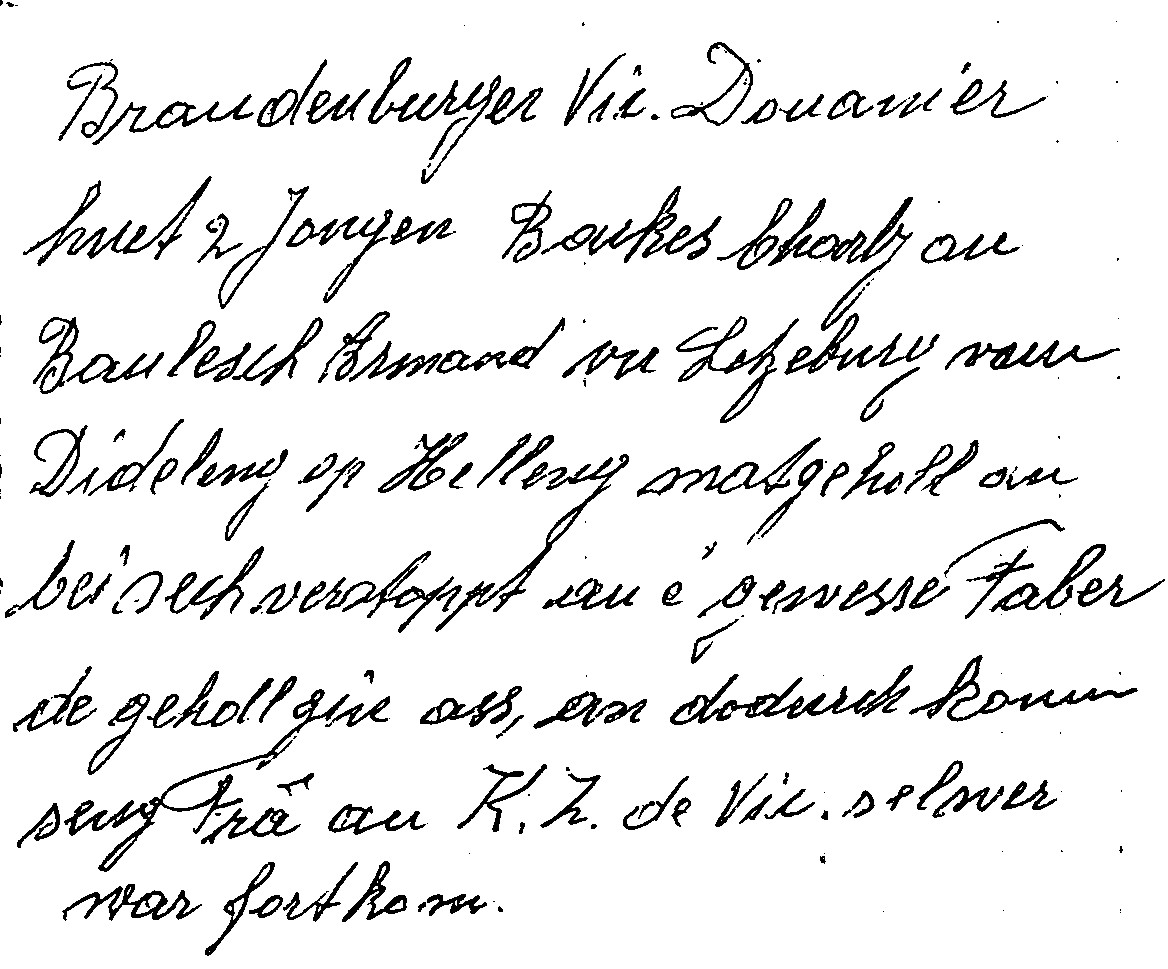 Brandenburger Vic. Douanier
huet 2 Jongen Baukes Charly an
Baulesch Ermand vu Letzeburg vum
Dideleng op Helleng matgeholl an
bei sech verstoppt an e gewesse Faber
de geholl gin ass, an dodurch koum
seng Frâ an K.Z. de Vic. selwer
war fortkom.